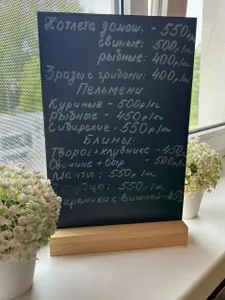 Котлета домаш. - 550 р/кг
свиные: 500 р/кг
рыбные: 400 р/кг
Зразы с грибами: 400 р/кг
Пельмени
Куриные - 500 р/кг
Рыбные - 450 р/кг
Сибирские - 550 р/кг
Блины:
Творог+клубника - 450
Свинина + сыр - 500 р/кг
550 р/кг
550 р/кг
Вареники с вишней - 450